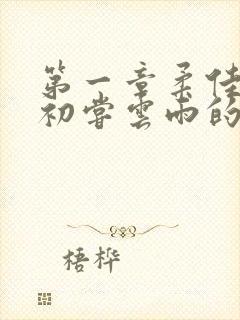 第一章柔佳
初尝云雨的
梧桦